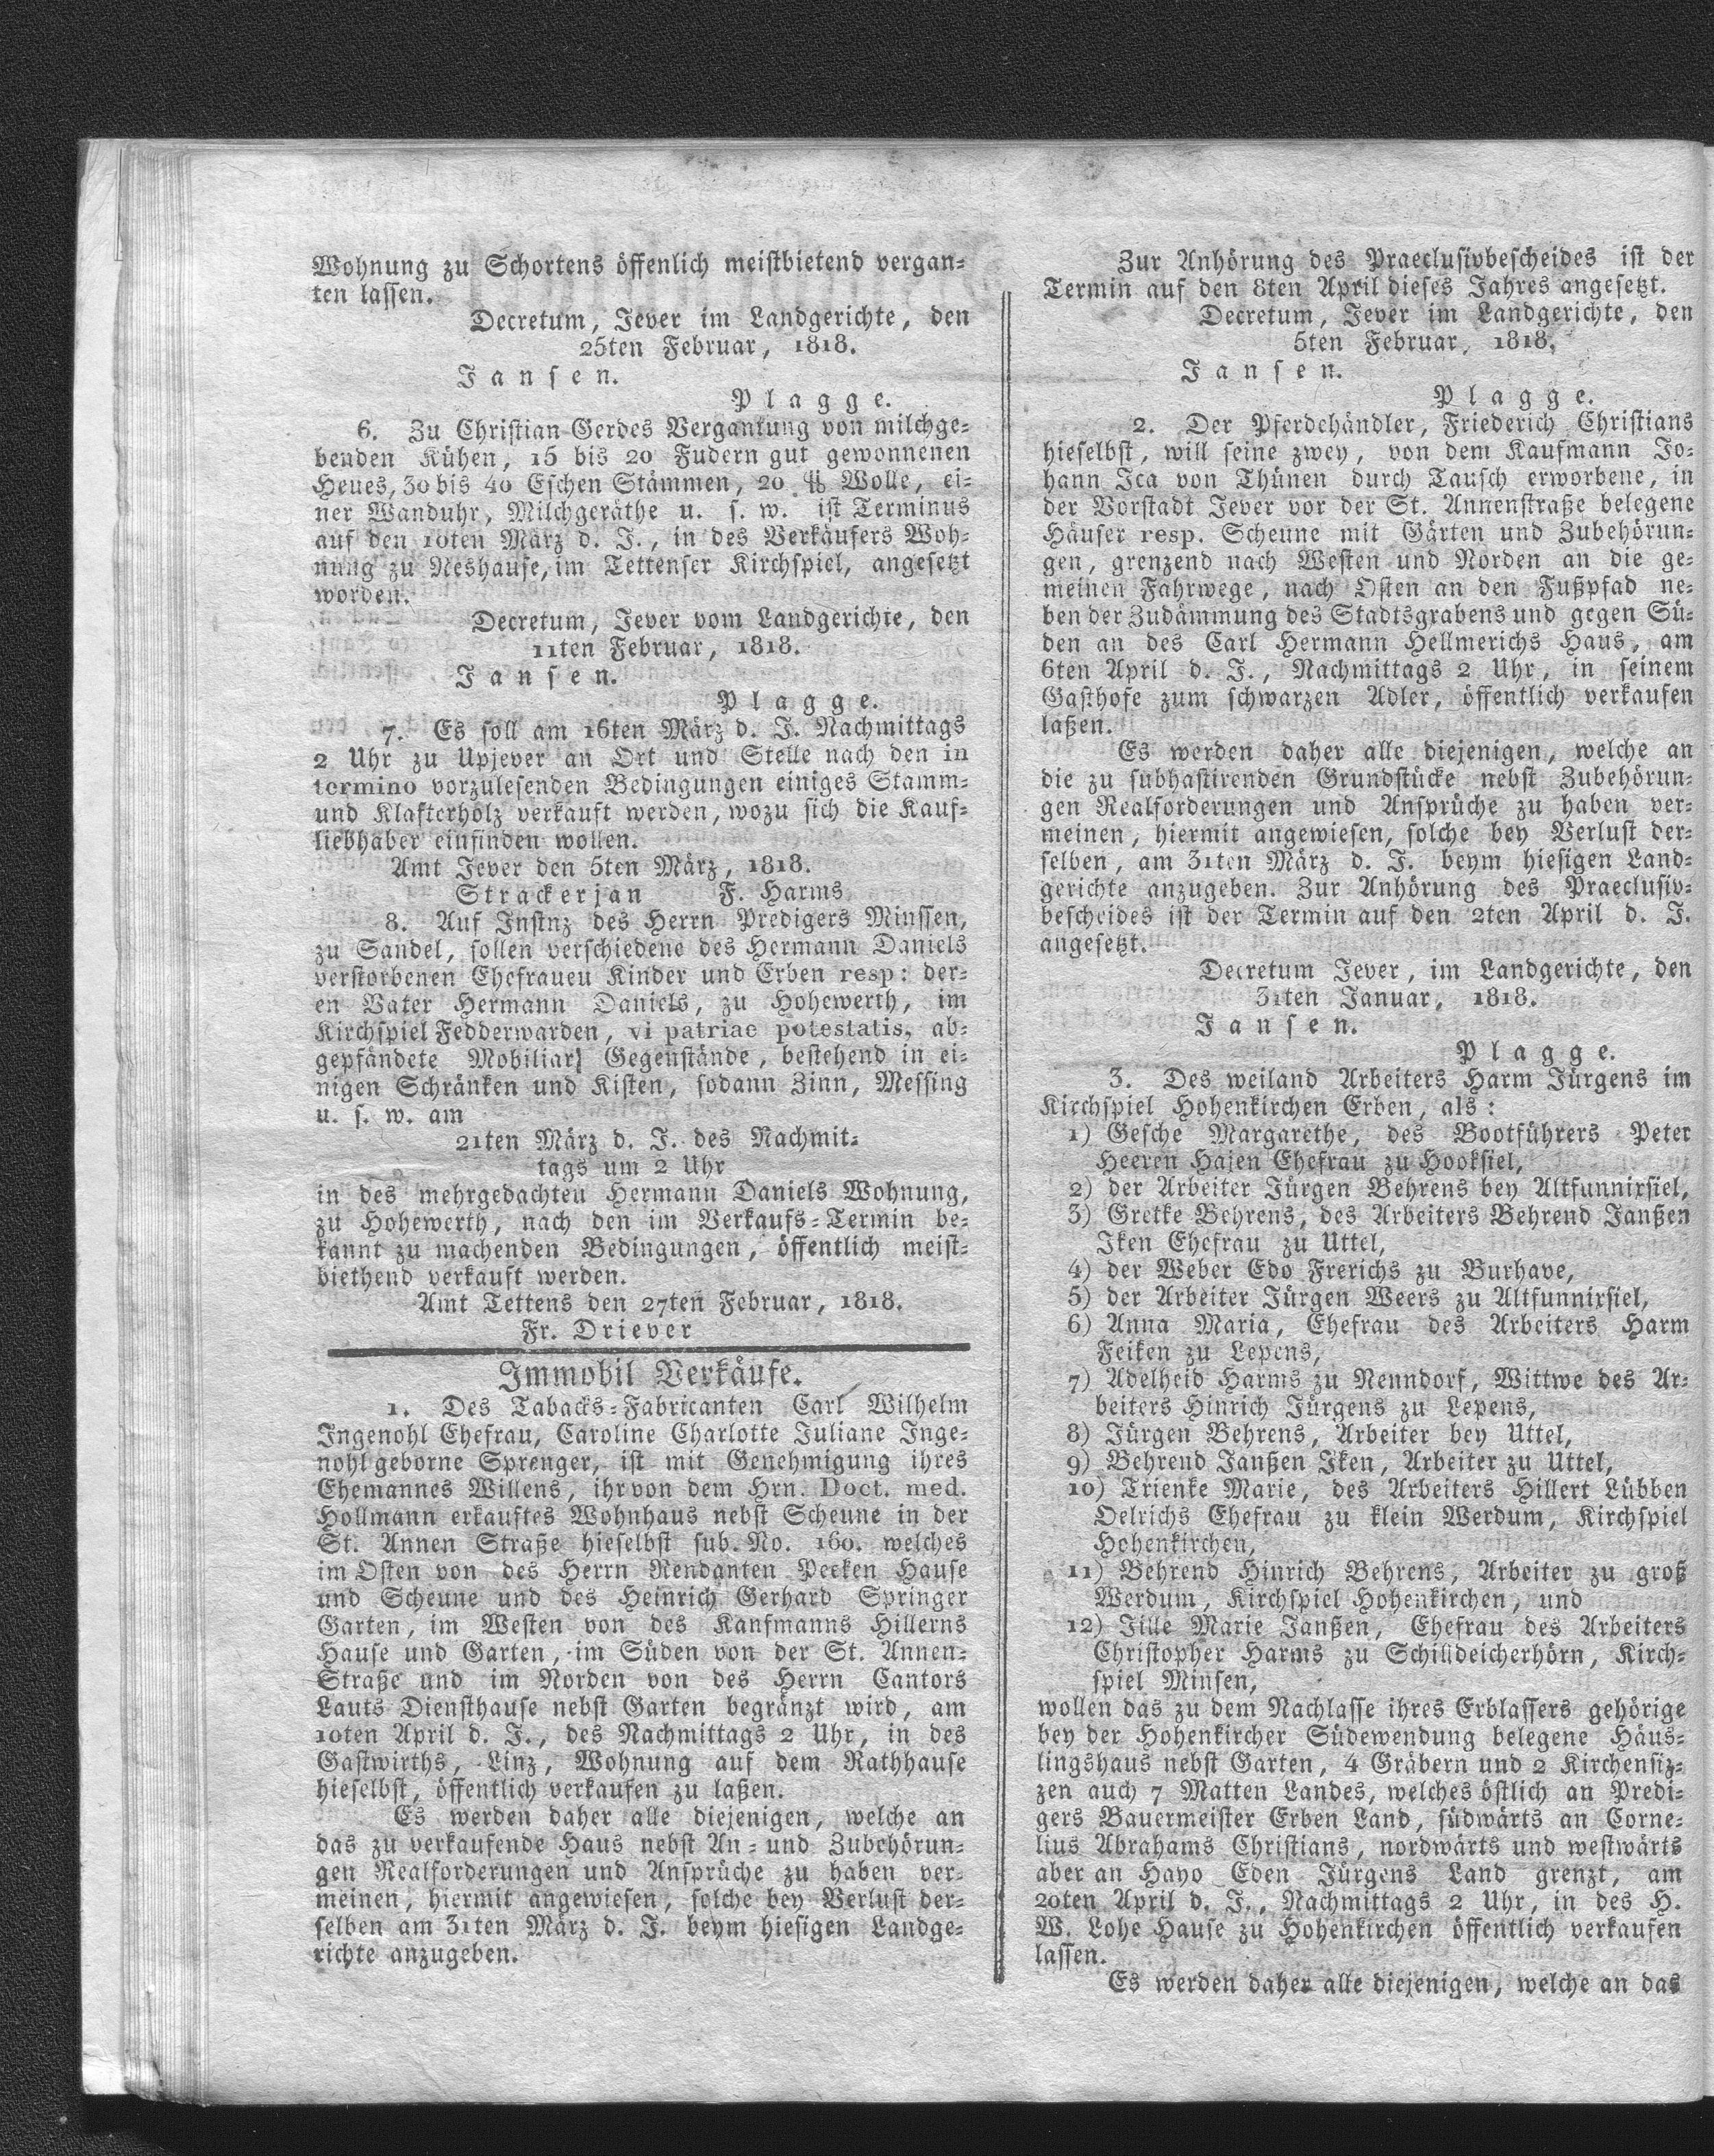 Wohnung zu Schortens öffenlich meistbietend vergan-
ten lassen.
Decretum, Jever im Landgerichte, den
25ten Februar, 1818.
Jansen.
Plagge.
6. Zu Christian Gerdes Vergantung von milchge-
benden Kühen, 15 bis 20 Fudern gut gewonnenen
Heues, 30 bis 40 Eschen Stämmen, 20 ℔ Wolle, ei-
ner Wanduhr, Milchgeräthe u. s. w. ist Terminus
auf den 10ten März d. J., in des Verkäufers Woh-
nung zu Neshause, im Tettenser Kirchspiel, angesetzt
worden.
Decretum, Jever vom Landgerichte, den
11ten Februar, 1818.
Jansen.
Plagge.
7. Es soll am 16ten März d. J. Nachmittags
2 Uhr zu Upjever an Ort und Stelle nach den in
termino vorzulesenden Bedingungen einiges Stamm-
und Klafterholz verkauft werden, wozu sich die Kauf-
liebhaber einfinden wollen.
Amt Jever den 5ten März, 1818.
Strackerjan F. Harms
8. Auf Instnz des Herrn Predigers Minssen,
zu Sandel, sollen verschiedene des Hermann Daniels
verstorbenen Ehefraueu Kinder und Erben resp: der-
en Vater Hermann Daniels, zu Hohewerth, im
Kirchspiel Fedderwarden, vi patriae potestatis, ab-
gepfändete Mobiliar Gegenstände, bestehend in ei-
nigen Schränken und Kisten, sodann Zinn, Messing
u. s. w. am
21ten März d. J. des Nachmit-
tags um 2 Uhr
in des mehrgedachten Hermann Daniels Wohnung,
zu Hohewerth, nach den im Verkaufs-Termin be-
kannt zu machenden Bedingungen, öffentlich meist-
biethend verkauft werden.
Amt Tettens den 27ten Februar, 1818.
Fr. Driever
Immobil Verkäufe.
1. Des Tabacks-Fabricanten Carl Wilhelm
Ingenohl Ehefrau, Caroline Charlotte Juliane Inge-
nohl geborne Sprenger, ist mit Genehmigung ihres
Ehemannes Willens, ihr von dem Hrn. Doct. med.
Hollmann erkauftes Wohnhaus nebst Scheune in der
St. Annen Straße hieselbst sub. No. 160. welches
im Osten von des Herrn Rendanten Peeken Hause
und Scheune und des Heinrich Gerhard Springer
Garten, im Westen von des Kanfmanns Hillerns
Hause und Garten, im Süden von der St. Annen-
Straße und im Norden von des Herrn Cantors
Lauts Diensthause nebst Garten begränzt wird, am
10ten April d. J., des Nachmittags 2 Uhr, in des
Gastwirths, Linz, Wohnung auf dem Rathhause
hieselbst, öffentlich verkaufen zu laßen.
Es werden daher alle diejenigen, welche an
das zu verkaufende Haus nebst An- und Zubehörun-
gen Realforderungen und Ansprüche zu haben ver-
meinen, hiermit angewiesen, solche bey Verlust der-
selben am 31ten März d. J. beym hiesigen Landge-
richte anzugeben.
Zur Anhörung des Praeclusivbescheides ist der
Termin auf den 8ten April dieses Jahres angesetzt.
Decretum, Jever im Landgerichte, den
5ten Februar, 1818.
Jansen.
Plagge.
2. Der Pferdehändler, Friederich Christians
hieselbst, will seine zwey, von dem Kaufmann Jo-
hann Ica von Thünen durch Tausch erworbene, in
der Vorstadt Jever vor der St. Annenstraße belegene
Häuser resp. Scheune mit Gärten und Zubehörun-
gen, grenzend nach Westen und Norden an die ge-
meinen Fahrwege, nach Osten an den Fußpfad ne-
ben der Zudämmung des Stadtsgrabens und gegen Sü-
den an des Carl Hermann Hellmerichs Haus, am
6ten April d. J., Nachmittags 2 Uhr, in seinem
Gasthofe zum schwarzen Adler, öffentlich verkaufen
laßen.
Es werden daher alle diejenigen, welche an
die zu subhastirenden Grundstücke nebst Zubehörun-
gen Realforderungen und Ansprüche zu haben ver-
meinen, hiermit angewiesen, solche bey Verlust der-
selben, am 31ten März d. J. beym hiesigen Land-
gerichte anzugeben. Zur Anhörung des Praeclusiv-
bescheides ist der Termin auf den 2ten April d. J.
angesetzt.
Decretum Jever, im Landgerichte, den
31ten Januar, 1818.
Jansen.
Plagge.
3. Des weiland Arbeiters Harm Jürgens im
Kirchspiel Hohenkirchen Erben, als:
1) Gesche Margarethe, des Bootführers Peter
Heeren Hajen Ehefrau zu Hooksiel,
2) der Arbeiter Jürgen Behrens bey Altfunnixsiel,
3) Gretke Behrens, des Arbeiters Behrend Janßen
Iken Ehefrau zu Uttel,
4) der Weber Edo Frerichs zu Burhave,
5) der Arbeiter Jürgen Weers zu Altfunnixsiel,
6) Anna Maria, Ehefrau des Arbeiters Harm
Feiken zu Lepens,
7) Adelheid Harms zu Nenndorf, Wittwe des Ar-
beiters Hinrich Jürgens zu Lepens,
8) Jürgen Behrens, Arbeiter bey Uttel,
9) Behrend Janßen Iken, Arbeiter zu Uttel,
10) Trienke Marie, des Arbeiters Hillert Lübben
Oelrichs Ehefrau zu klein Werdum, Kirchspiel
Hohenkirchen,
11) Behrend Hinrich Behrens, Arbeiter zu groß
Werdum, Kirchspiel Hohenkirchen, und
12) Jille Marie Janßen, Ehefrau des Arbeiters
Christopher Harms zu Schilldeicherhörn, Kirch-
spiel Minsen,
wollen das zu dem Nachlasse ihres Erblassers gehörige
bey der Hohenkircher Südewendung belegene Häus-
lingshaus nebst Garten, 4 Gräbern und 2 Kirchensiz-
zen auch 7 Matten Landes, welches östlich an Predi-
gers Bauermeister Erben Land, südwärts an Corne-
lius Abrahams Christians, nordwärts und westwärts
aber an Hayo Eden Jürgens Land grenzt, am
20ten April d. J., Nachmittags 2 Uhr, in des H.
W. Lohe Hause zu Hohenkirchen öffentlich verkaufen
lassen.
Es werden daher alle diejenigen, welche an das